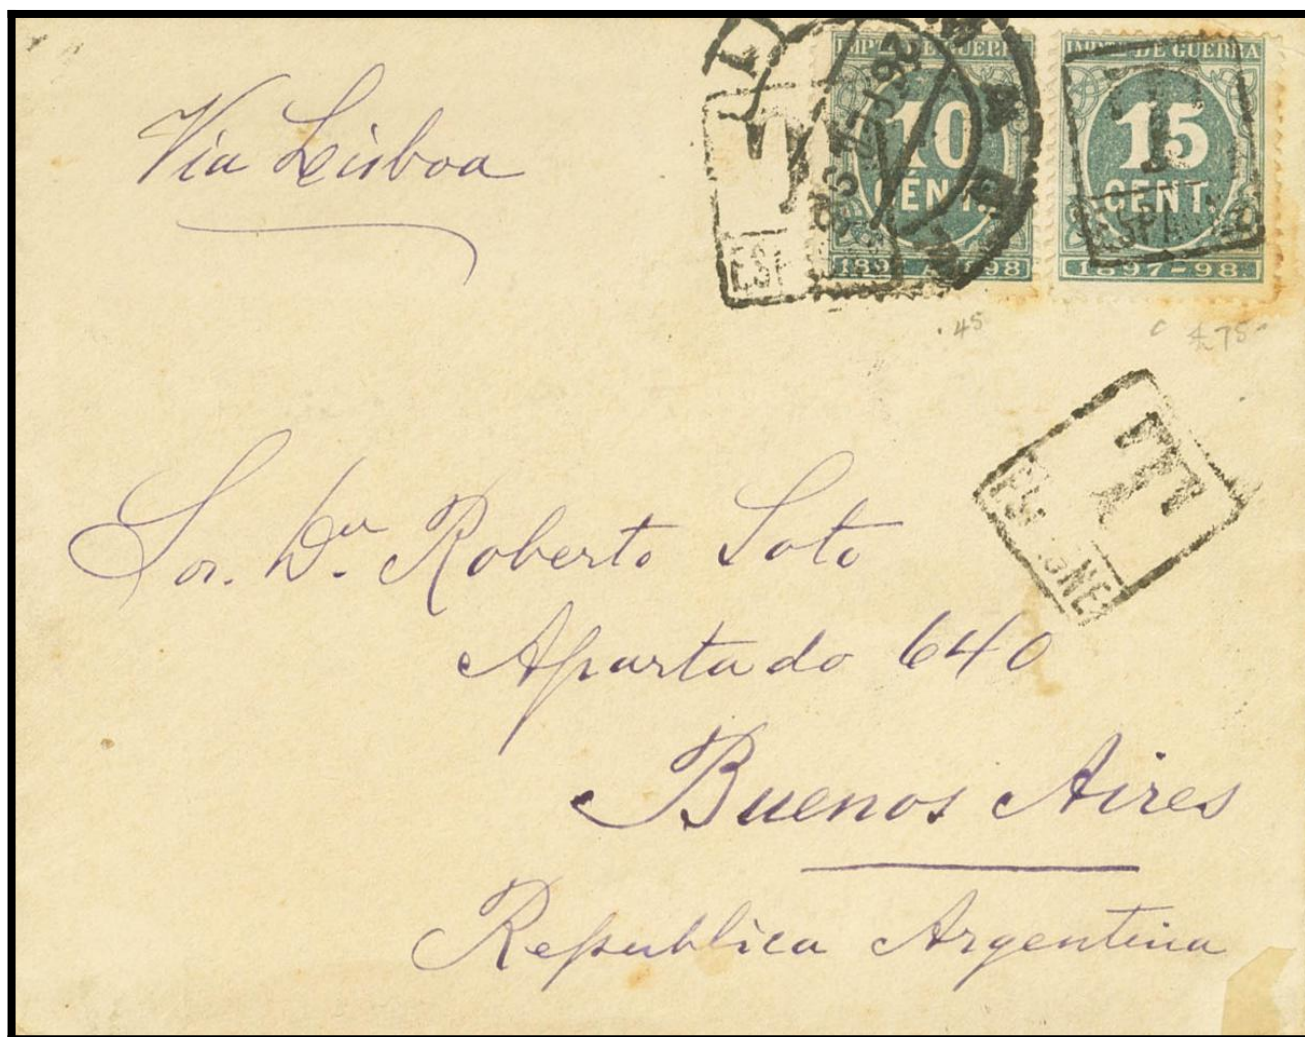 Via Lisboa
IMPTO DE GUERRA
10
CÉNT.
1897 A 1898
IMPTO DE GUERRA
15
CENT.
1897-98.
T
T
T
45
75
Sor. Dn. Roberto Soto
Apartado 640
Buenos Aires
Republica Argentina